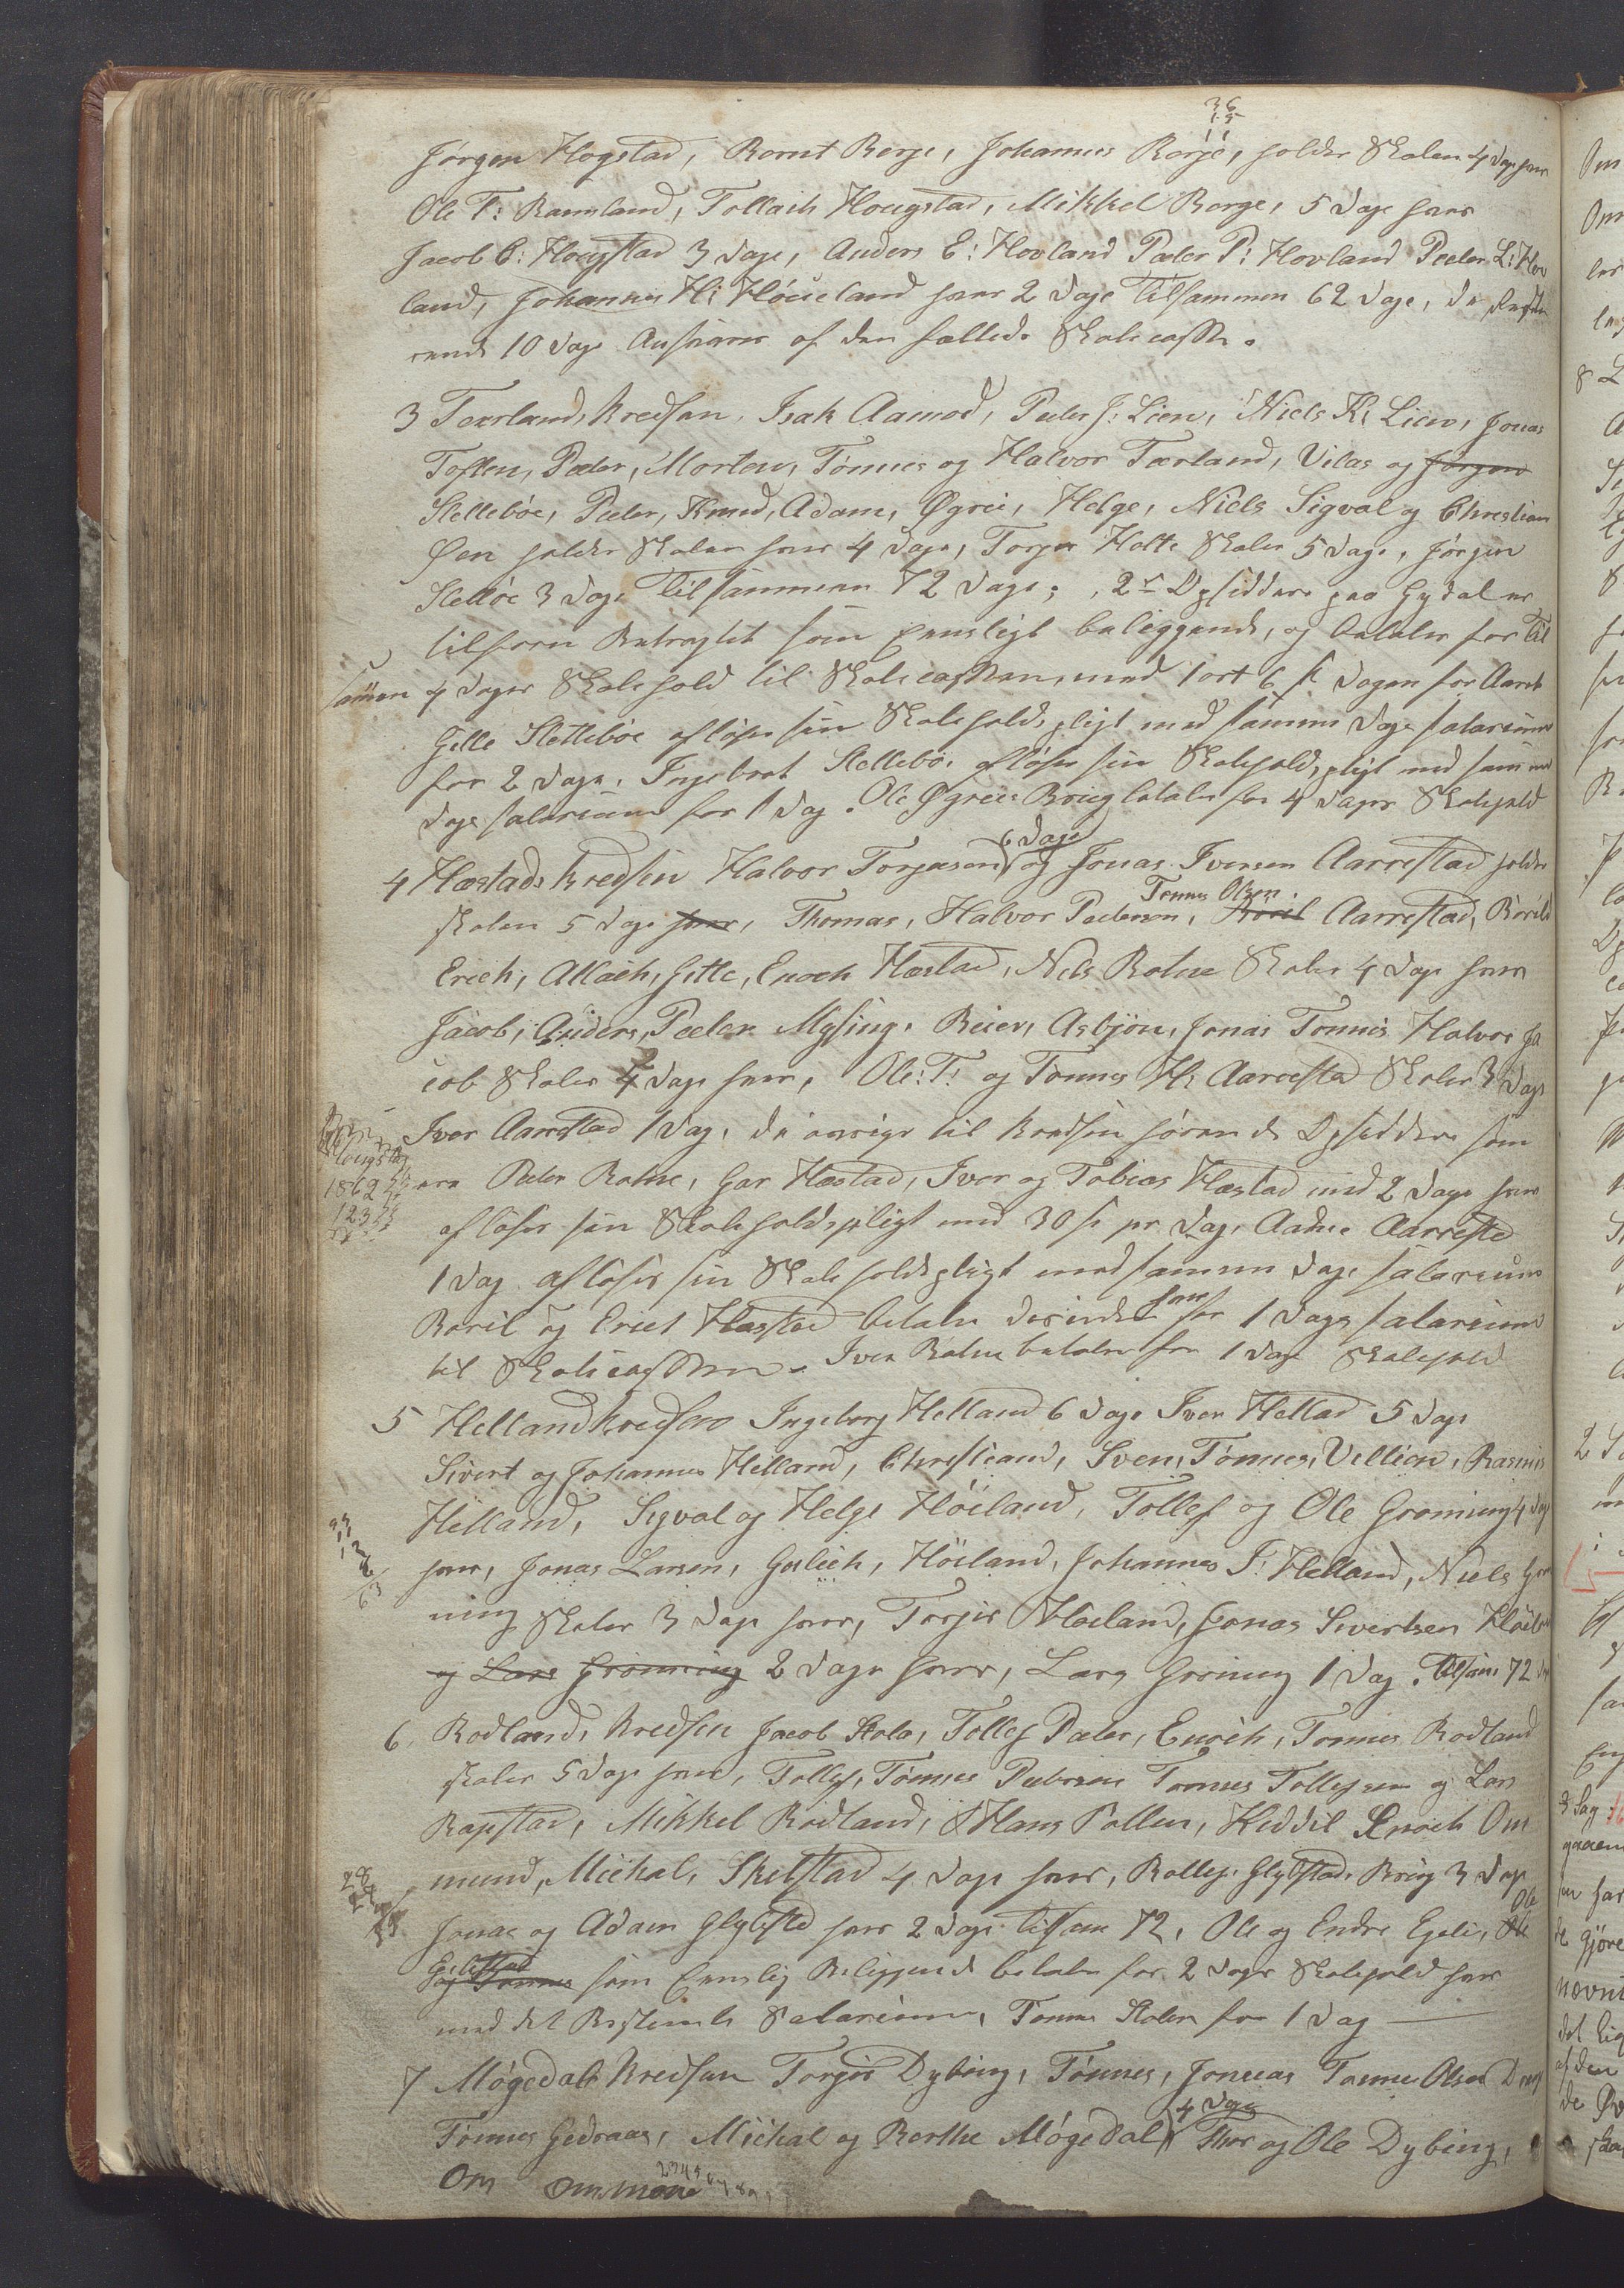 36
15
11
Jørgen Hogstad, Bernt Berje, Johannes Berje, holder Skolen 4 dage hver
Ole T: Ramsland, Tollach Hougstad, Mikkel Berge, 5 dage hver
Jacob C: Hougstad 3 dage, Anders E: Hovland Peder P: Hovland Peder L: Hov
land, Johannes H: Høueland hver 2 dage Tilsammen 62 dage, de
rende 10 dage Ansvares af den fælleds Skolecasse.
3 Tærlands kredsen. Isak Aamod, Peder J: Lien, Niels K: Lien, Jonas
Toften, Peder, Morten, Tønnes og Halvor Tærland, Vilas og Jørgen
Slettebøe, Peder, Knud, Adam, Øgrei, Helge, Niels Sigval og Christian
Øen holder Skolen hver 4 dage, Torger Holte Skoler 5 dage, Jørgen
Slettøe 3 dage Tilsammen 72 dage; 2de Opsiddere paa Gydal er
tilforn Betragtet som eensligt beliggende, og betaler for Til
samen 4 dages Skolehold til Skolecassen med 1 ort 6 s dagen for Aaret
Gitle Slettebøe afløser sin Skoleholds pligt med samme dags salarium
for 2 dage. Ingebret Slettebøe afløser sin Skoleholds pligt med samme
dags salarium for 1 dag. Ole Øgreie Brug betaler for 4 dages Skolehold
6 dage
4 Hæstads kredsen Halvor Torjusen og Jonas Iversen Aarrestad holder
Tønnes Olsen
skolen 5 dage hver, Thomas, Halvor Pedersen, Boril Aarrestad, Borild
Erich, Allach, Gitle, Enoch Hæstad, Nils Botne Skoler 4 dage hver
Jacob, Anders, Peder Mysing. Beier, Asbjøn, Jonas Tønnes Halvor Ja
cob Skoler 2 dage hver, Ole: T: og Tønnes H: Aarrestad Skoler 3 dage
Iver Aarrestad 1 dag, de øvrige til kredsen hørende Opsiddere som
ere Peder Botne, Gar Hæstad, Iver og Tobias Hæstad med 2 dage hver
Hougstad
1862
123
afløser sin Skoleholdspligt med 30 s pr. dag, Aadne Aarrestad
1 dag afløser sin Skoleholdspligt med samme dags salarium
Boril og Erich Hæstad betaler desuden hver for 1 dags salarium
til Skolecassen. Iver Botne betaler for 1 dags Skolehold
5 Hellandkredsen Ingeborg Helland 6 dage Iver Helland 5 dage
Sivert og Johannes Helland, Christiand, Sven, Tønnes, Villien, Rasmus
Helland, Sigval og Helge Høiland, Tollef og Ole Grøning 4 dage
hver, Jonas Larsen, Gulich, Høiland, Johannes T: Helland, Niels Grø
63
ning Skoler 3 dage hver, Torjer Høeland, Jonas Sivertsen Høiland
og Lars Grønning 2 dage hver, Lars Grøning 1 dag. Tilsam: 72 dage
6. Rodlands kredsen Jacob Stole, Tollef Peder, Enoch, Tønnes Rodland
skoler 5 dage hver, Tollef, Tønnes Pedersen Tønnes Tollefsen og Lars
Rapstad, Mikkel Rodland, Hans Pollen, Keddil Enoch Om
mund, Michal, Skelstad 4 dage hver, Rollef Glypstad Brug 3 dage
28
24
Jonas og Adam Glypsted hver 2 dage tilsam 72. Ole og Endre Egeli, Ole
Ole
Gilestad
og Tønnes som Eenslig Beliggende betaler for 2 dages Skolehold hver
med det Bestemte Salarium, Tønnes Stolen for 1 dag
7 Møgedals kredsen Torjer Dybing, Tønnes, Jonas Tønnes Olsen
4 dage
Tønnes Gedraas, Michal og Berthe Møgedal Thor og Ole Dybing,
Om Ommone 23456789